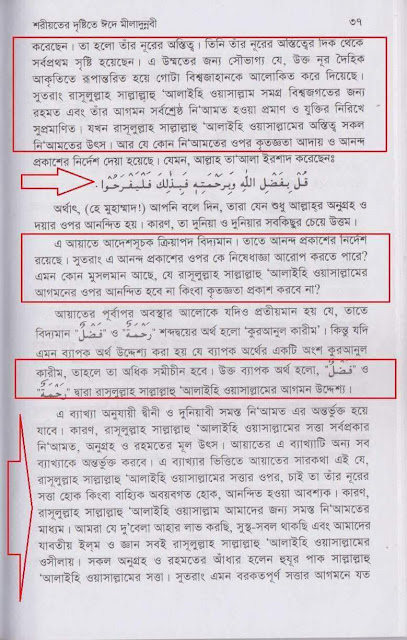 শরীয়তের দৃষ্টিতে ঈদে মীলাদুন্নবী ৩৭
করেছেন। তা হলো তাঁর নূরের অস্তিত্ব। তিনি তাঁর নূরের অস্তিত্বের দিক থেকে
সর্বপ্রথম সৃষ্টি হয়েছেন। এ উম্মতের জন্য সৌভাগ্য যে, উক্ত নূর দৈহিক
আকৃতিতে রূপান্তরিত হয়ে গোটা বিশ্বজাহানকে আলোকিত করে দিয়েছে।
সুতরাং রাসূলুল্লাহ সাল্লাল্লাহু ‘আলাইহি ওয়াসাল্লাম সমগ্র বিশ্বজগতের জন্য
রহমত এবং তাঁর আগমন সর্বশ্রেষ্ঠ নি‘আমত হওয়া প্রমাণ ও যুক্তির নিরিখে
সুপ্রমাণিত। যখন রাসূলুল্লাহ সাল্লাল্লাহু ‘আলাইহি ওয়াসাল্লামের অস্তিত্ব সকল
নি‘আমতের উৎস। আর যে কোন নি‘আমতের ওপর কৃতজ্ঞতা আদায় ও আনন্দ
প্রকাশের নির্দেশ দেয়া হয়েছে। যেমন, আল্লাহ তা‘আলা ইরশাদ করেছেনঃ
قُلْ بِفَضْلِ اللّٰهِ وَبِرَحْمَتِهٖ فَبِذٰلِكَ فَلْيَفْرَحُوْا.
অর্থাৎ, (হে মুহাম্মাদ!) আপনি বলে দিন, তারা যেন শুধু আল্লাহ্‌র অনুগ্রহ ও
দয়ার ওপর আনন্দিত হয়। কারণ, তা দুনিয়া ও দুনিয়ার সবকিছুর চেয়ে উত্তম।
এ আয়াতে আদেশসূচক ক্রিয়াপদ বিদ্যমান। তাতে আনন্দ প্রকাশের নির্দেশ
রয়েছে। সুতরাং এ আনন্দ প্রকাশের ওপর কে নিষেধাজ্ঞা আরোপ করতে পারে?
এমন কোন মুসলমান আছে, যে রাসূলুল্লাহ সাল্লাল্লাহু ‘আলাইহি ওয়াসাল্লামের
আগমনের ওপর আনন্দিত হবে না কিংবা কৃতজ্ঞতা প্রকাশ করবে না?
আয়াতের পূর্বাপর অবস্থার আলোকে যদিও প্রতীয়মান হয় যে, তাতে
বিদ্যমান "فَضْلٌ" ও "رَحْمَةٌ" শব্দদ্বয়ের অর্থ হলো ‘কুরআনুল কারীম’। কিন্তু যদি
এমন ব্যাপক অর্থ উদ্দেশ্য করা হয় যে ব্যাপক অর্থের একটি অংশ কুরআনুল
কারীম, তাহলে তা অধিক সমীচীন হবে। উক্ত ব্যাপক অর্থ হলো, "فَضْلٌ" ও
"رَحْمَةٌ" দ্বারা রাসূলুল্লাহ সাল্লাল্লাহু ‘আলাইহি ওয়াসাল্লামের আগমন উদ্দেশ্য।
এ ব্যাখ্যা অনুযায়ী দ্বীনী ও দুনিয়াবী সমস্ত নি‘আমত এর অন্তর্ভুক্ত হয়ে
যাবে। কারণ, রাসূলুল্লাহ সাল্লাল্লাহু ‘আলাইহি ওয়াসাল্লামের সত্তা সর্বপ্রকার
নি‘আমত, অনুগ্রহ ও রহমতের মূল উৎস। আয়াতের এ ব্যাখ্যাটি অন্য সব
ব্যাখ্যাকে অন্তর্ভুক্ত করবে। এ ব্যাখ্যার ভিত্তিতে আয়াতের সারকথা এই যে,
রাসূলুল্লাহ সাল্লাল্লাহু ‘আলাইহি ওয়াসাল্লামের সত্তার ওপর, চাই তা তাঁর নূরের
সত্তা হোক কিংবা বাহ্যিক অবয়বগত হোক, আনন্দিত হওয়া আবশ্যক। কারণ,
রাসূলুল্লাহ সাল্লাল্লাহু ‘আলাইহি ওয়াসাল্লাম আমাদের জন্য সমস্ত নি‘আমতের
মাধ্যম। আমরা যে দু’বেলা আহার লাভ করছি, সুস্থ-সবল থাকছি এবং আমাদের
যাবতীয় ইল্‌ম ও জ্ঞান সবই রাসূলুল্লাহ সাল্লাল্লাহু ‘আলাইহি ওয়াসাল্লামের
ওসীলায়। সকল অনুগ্রহ ও রহমতের আধার হলেন হুযূর পাক সাল্লাল্লাহু
‘আলাইহি ওয়াসাল্লামের সত্তা। সুতরাং এমন বরকতপূর্ণ সত্তার আগমনে যত